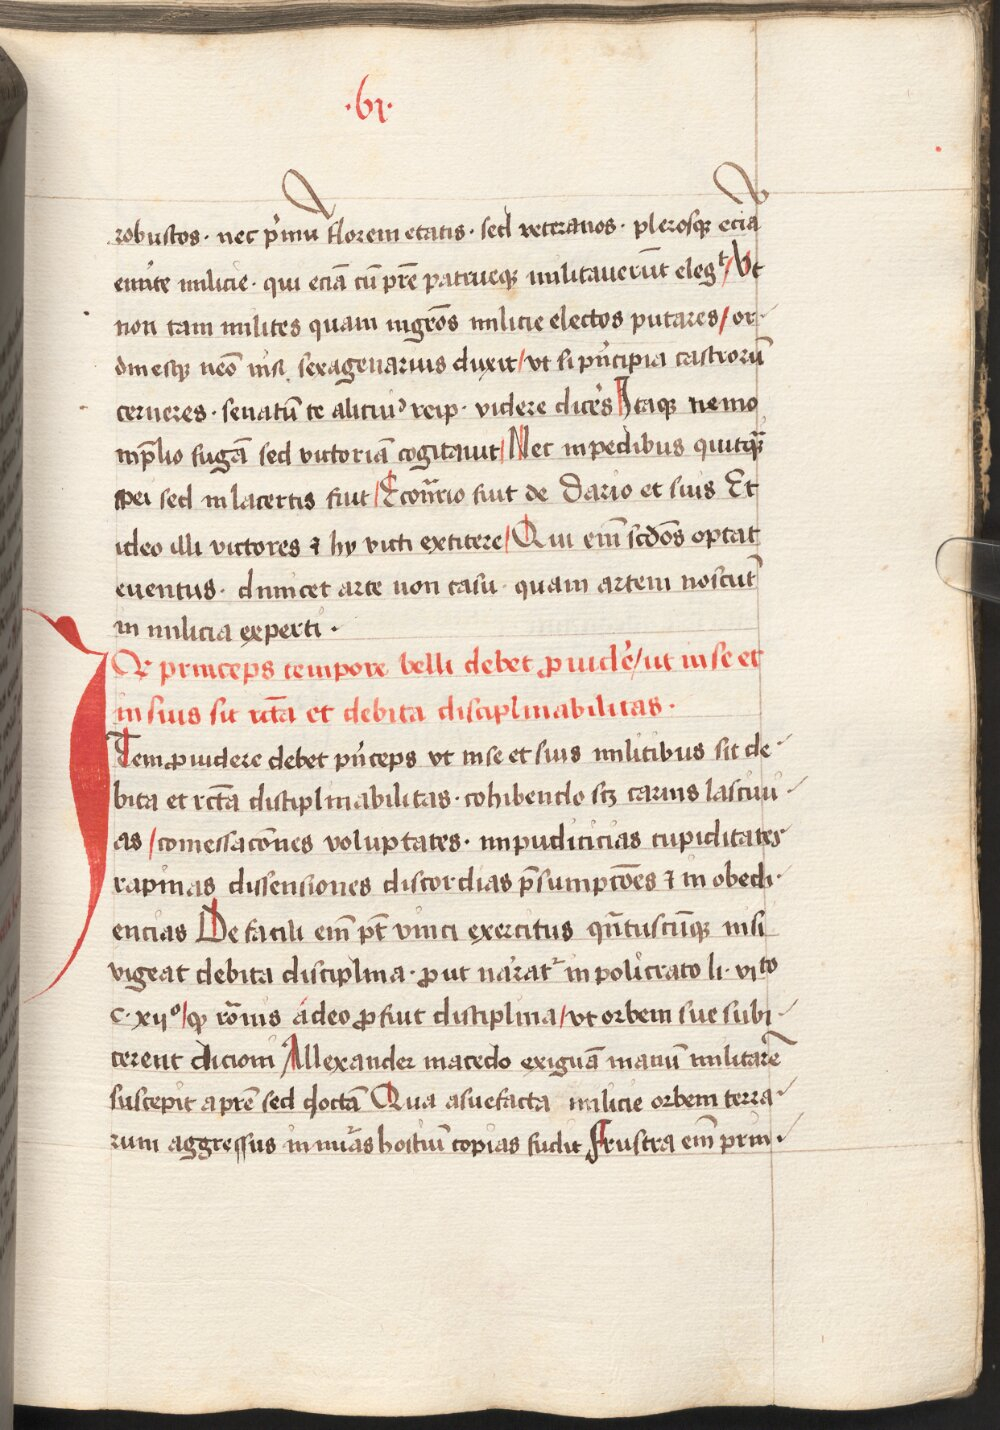 ·bi·
robustos · nec p̄mū florem etatis · sed veteranos · plerosqꝫ eciā
emīte milicie · qui eciā cū p̄re patrueqꝫ militauerūt elegᵗ / Vt
non tam milites quam mgr̄os milicie electos putares / or
dinesqꝫ neō nisi sexagenarius duxit / vt si pn̄cipia castrorū
cerneres · senatū te alicuiꝰ reip · videre dicēs Itaqꝫ nemo
inp̄lio fugā sed victoriā cogitauit / Nec inpedibus quitqꝫ
spei sed inlacertis fiut / Econ̄rio fiut de Dario et suis Et
ideo illi victores ⁊ hy victi extitere / Qui em̄ scd̄os optat
euentus · dimicet arte non casu · quam artem noscūt
in milicia experti ·
Qꝛ princeps tempore belli debet ꝓuidē / ut inse et
insuis sit rc̄ta et debita disciplinabilitas ·
Item ꝓuidere debet pn̄ceps vt inse et suis militibus sit de
bita et rc̄ta disciplinabilitas · cohibendo scꝫ carnis lasciui
as / comessacōnes voluptates · impudicicias cupiditates
rapinas dissensiones discordias p̄sumpcōes ⁊ in obedi
encias De facili em̄ pt̄ vinci exercitus qn̄tuscūqꝫ nisi
vigeat debita disciplina · ꝓut narrat᷑ in policrato li · viᵗᵒ
c · xijº / qꝫ rōnis adeo ꝓfiut disciplina / vt orbem sue subi
cerent dicioni Allexander macedo exiguā manū militarē
suscepit aprē sed doctā Qua asuefacta milicie orbem terra
rum aggressus innūas hostiū copias fudit Frustra em̄ prin